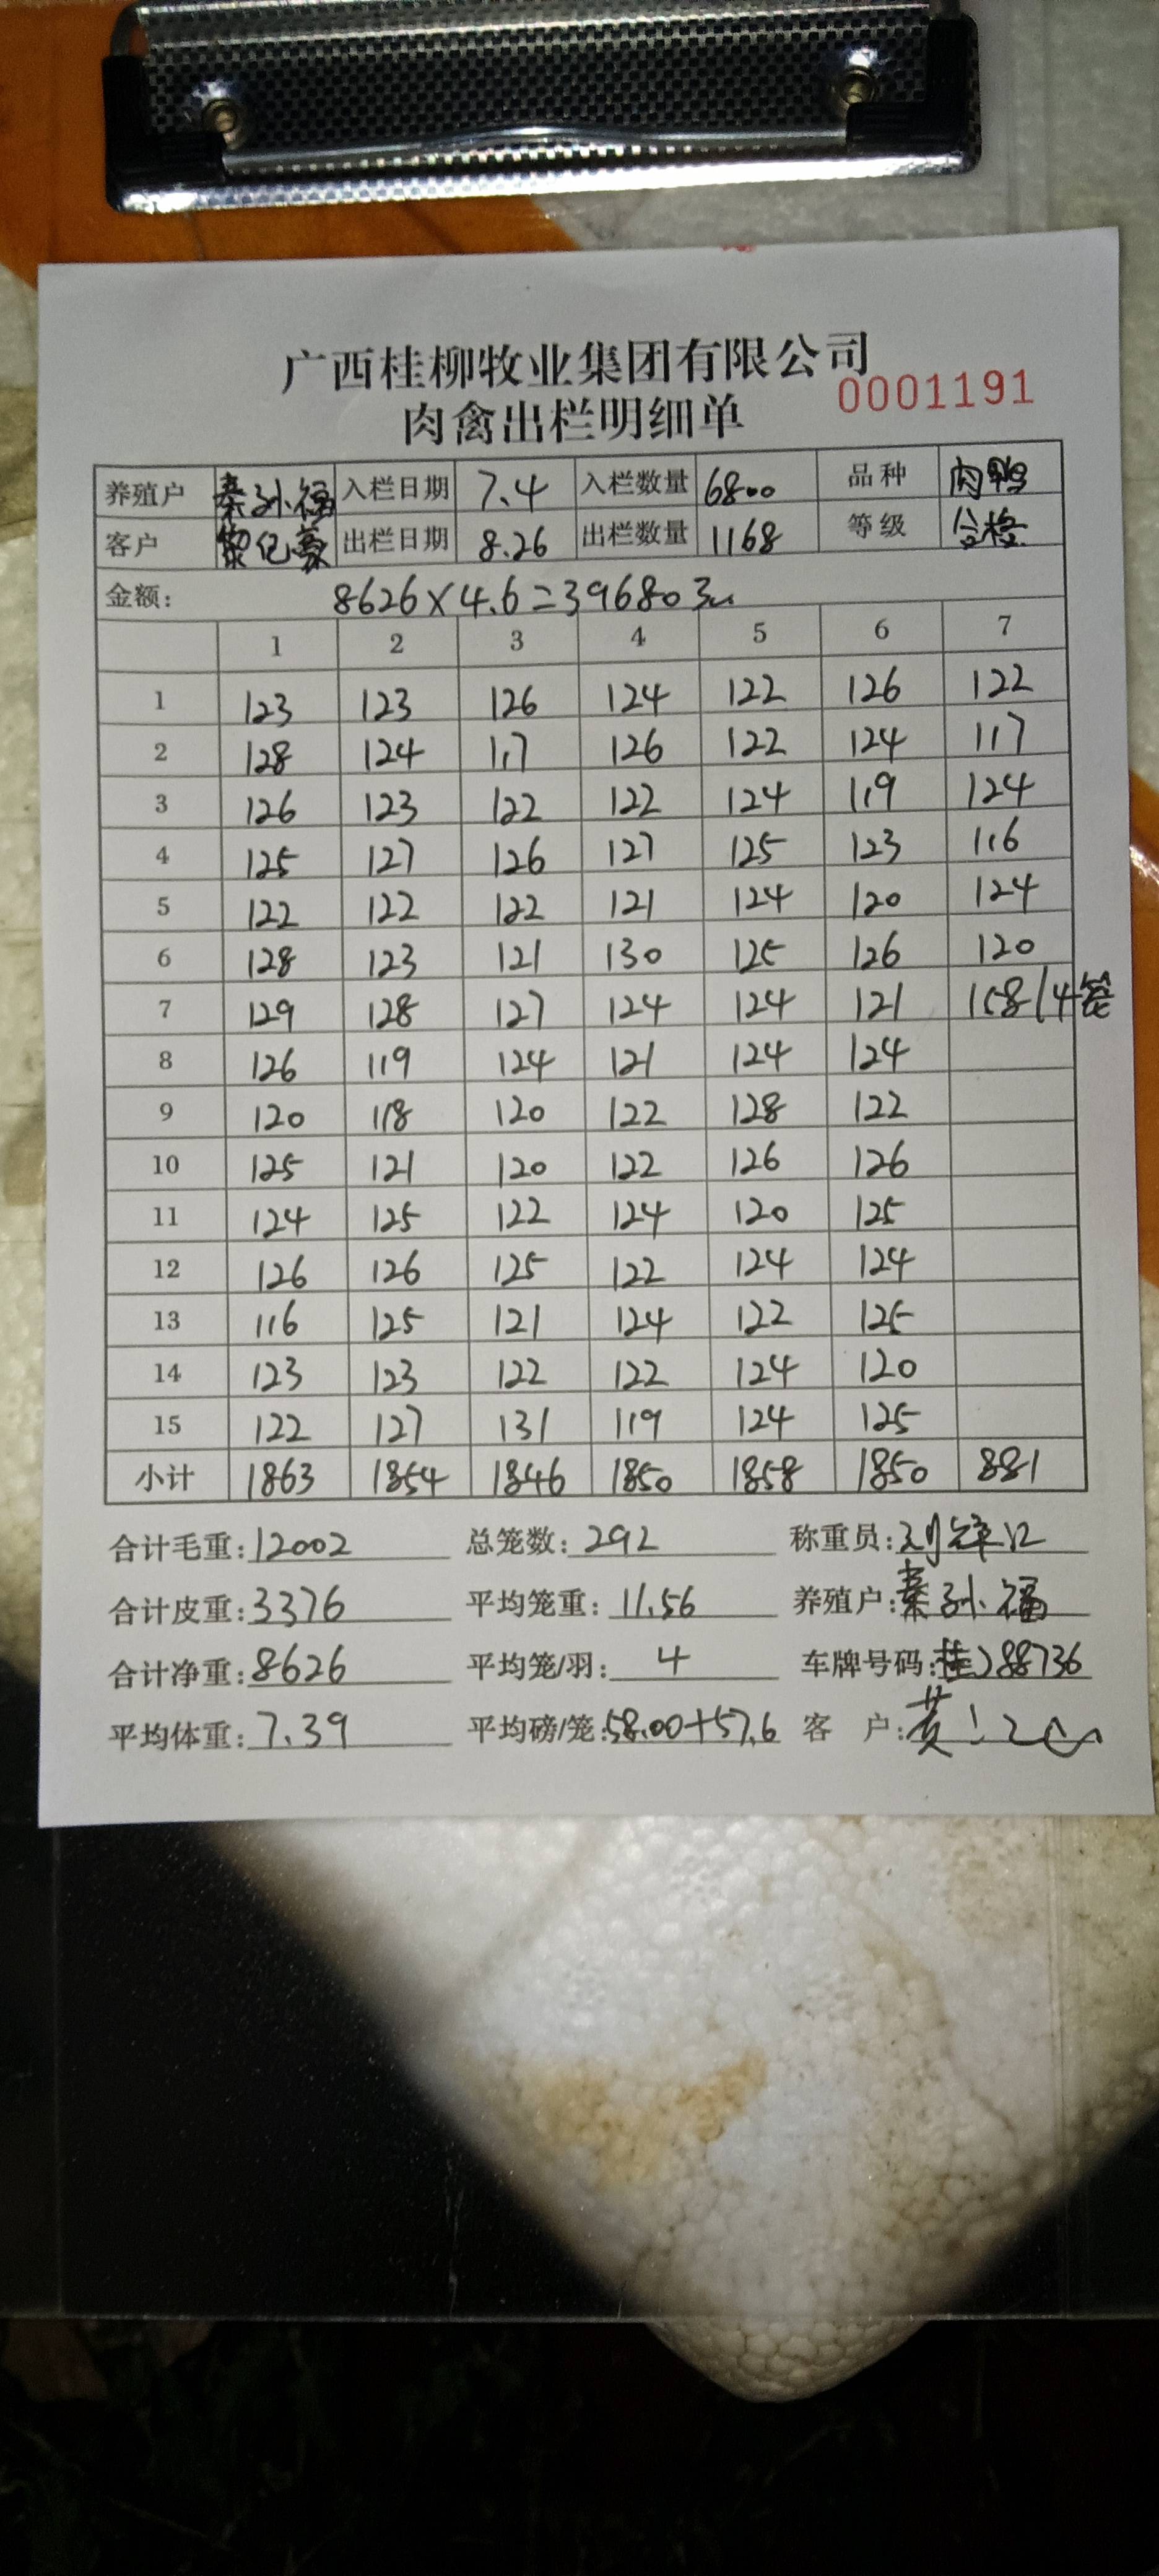 广西桂柳牧业集团有限公司
0001191
肉禽出栏明细单
养殖户 秦孙福 入栏日期 7.4 入栏数量 6800 品种 肉鸭
客户 黎纪豪 出栏日期 8.26 出栏数量 1168 等级 合格
金额: 8626×4.6=39680元
1 2 3 4 5 6 7
1 123 123 126 124 122 126 122
2 128 124 117 126 122 124 117
3 126 123 122 122 124 119 124
4 125 127 126 127 125 123 116
5 122 122 122 121 124 120 124
6 128 123 121 130 125 126 120
7 129 128 127 124 124 121 158/4笼
8 126 119 124 121 124 124
9 120 118 120 122 128 122
10 125 121 120 122 126 126
11 124 125 122 124 120 125
12 126 126 125 122 124 124
13 116 125 121 124 122 125
14 123 123 122 122 124 120
15 122 127 131 119 124 125
小计 1863 1854 1846 1850 1858 1850 881
合计毛重:12002 总笼数:292 称重员:
合计皮重:3376 平均笼重:11.56 养殖户:秦孙福
合计净重:8626 平均笼/羽:4 车牌号码:桂J88736
平均体重:7.39 平均磅/笼:58.00+57.6 客 户:黄